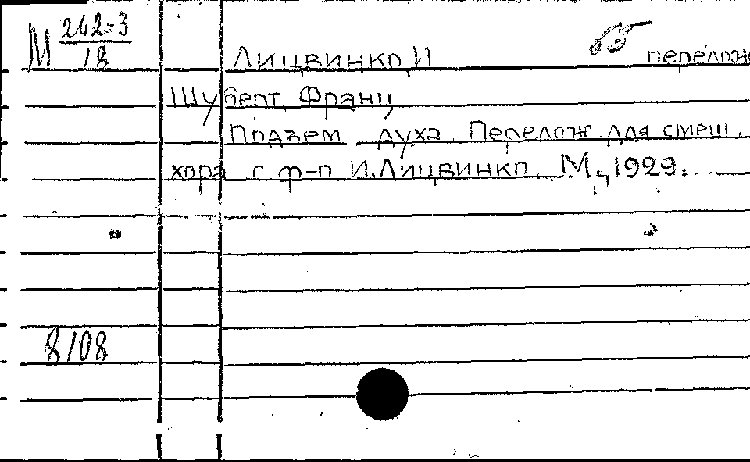 М 242-3
18
Лицвинко, И перелож
Шуберт, Франц
Подъем духа. Перелож. для смеш.
хора с ф-п И. Лицвинко. М., 1929.
8/08